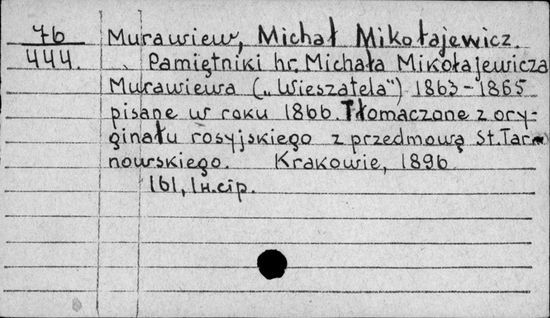 76 Murawiew, Michał Mikołajewicz.
444. Pamiętniki hr. Michała Mikołajewicza
Murawiewa („Wieszatela") 1863-1865
pisane w roku 1866. Tłomaczone z ory-
ginału rosyjskiego z przedmową St. Tar-
nowskiego. Krakowie, 1896
161, 1н.cip.